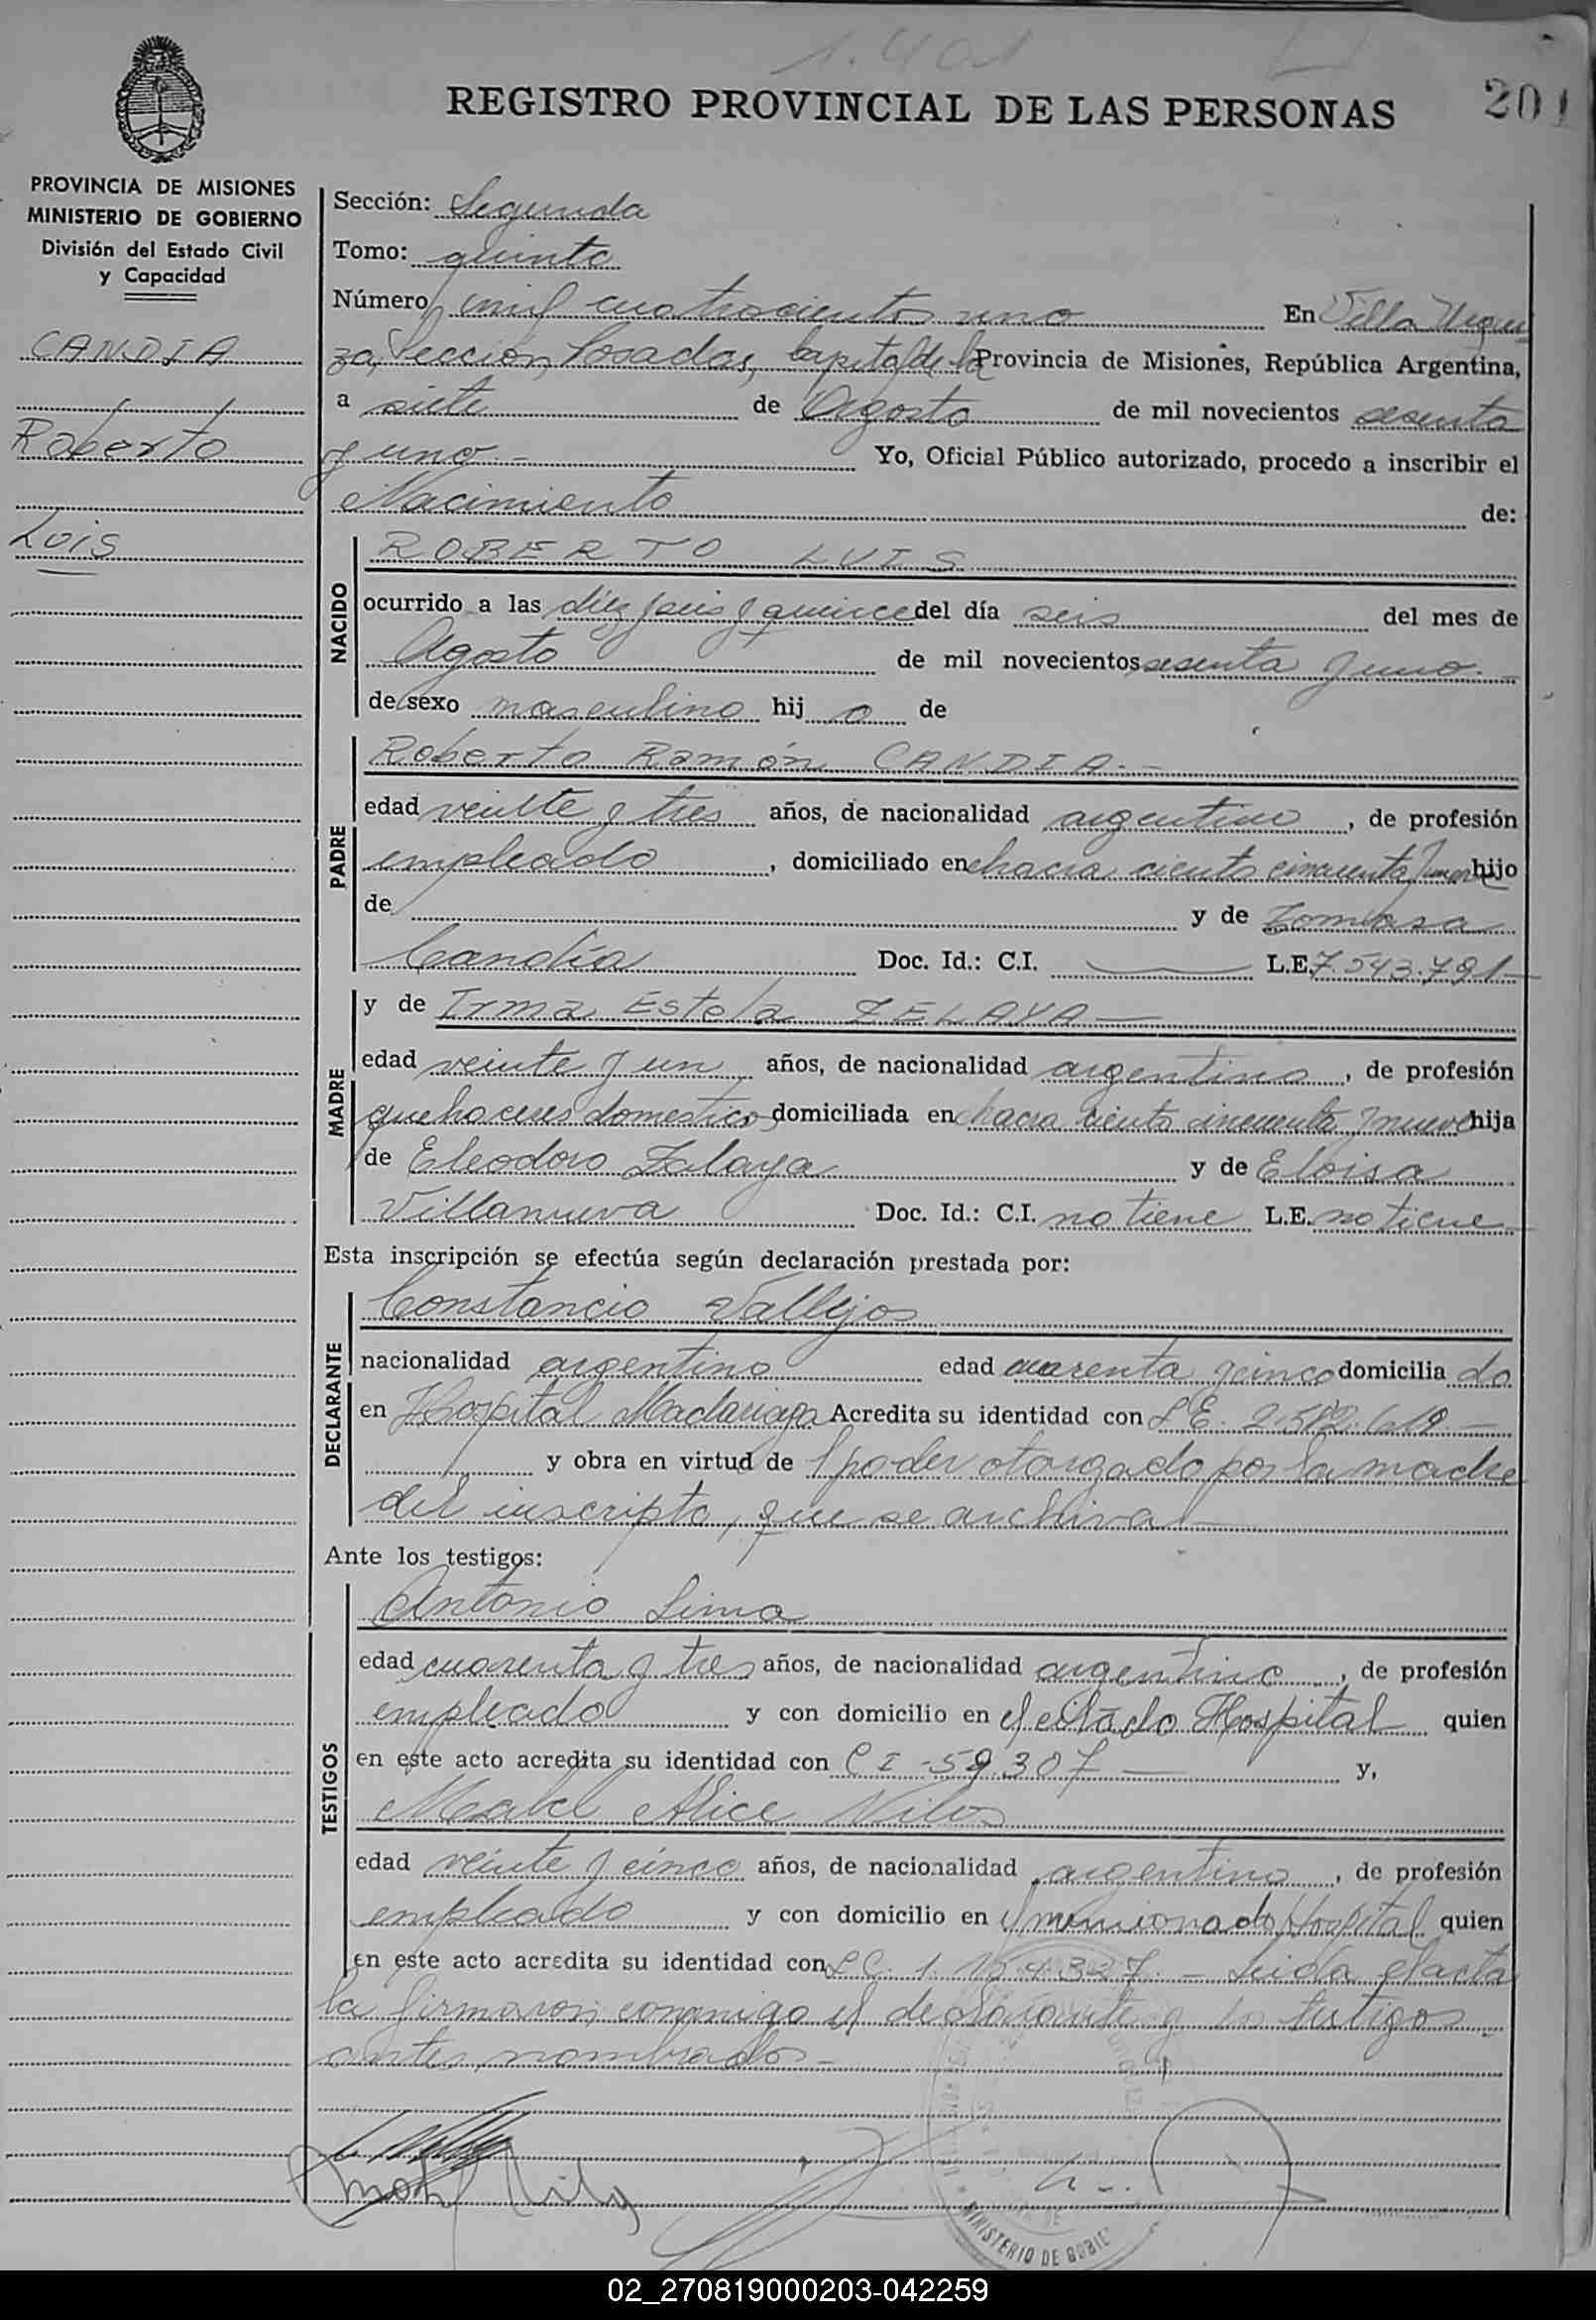 1.401
REGISTRO PROVINCIAL DE LAS PERSONAS
201
PROVINCIA DE MISIONES
MINISTERIO DE GOBIERNO
División del Estado Civil
y Capacidad
CANDIA
Roberto
Luis
Sección: Segunda
Tomo: quinto
Número mil cuatrocientos uno En Villa Urqui
za, Sección, Posadas, Capital de la Provincia de Misiones, República Argentina,
a siete de Agosto de mil novecientos sesenta
y uno.- Yo, Oficial Público autorizado, procedo a inscribir el
Nacimiento de:
NACIDO
ROBERTO LUIS
ocurrido a las diez y seis y quince del día seis del mes de
Agosto de mil novecientos sesenta y uno.-
de sexo masculino hij o de
PADRE
Roberto Ramón CANDIA.-
edad veinte y tres años, de nacionalidad argentino, de profesión
empleado, domiciliado en chacra ciento cincuenta y nueve hijo
de y de Tomasa
Candia Doc. Id.: C.I. L.E. 7.543.791-
MADRE
y de Irma Estela ZELAYA-
edad veinte y un años, de nacionalidad argentina, de profesión
quehaceres domesticos domiciliada en chacra ciento cincuenta y nueve hija
de Eleodoro Zelaya y de Eloisa
Villanueva Doc. Id.: C.I. no tiene L.E. no tiene
Esta inscripción se efectúa según declaración prestada por:
DECLARANTE
Constancio Vallejos
nacionalidad argentino edad cuarenta y cinco domicilia do
en Hospital Madariaga Acredita su identidad con L.E.
y obra en virtud de el poder otorgado por la madre
del inscripto, que se archiva-
Ante los testigos:
TESTIGOS
Antonio Lima
edad cuarenta y tres años, de nacionalidad argentino, de profesión
empleado y con domicilio en el citado Hospital quien
en este acto acredita su identidad con C I -59.307- y,
Mabel Alice
edad veinte y cinco años, de nacionalidad argentina, de profesión
empleado y con domicilio en el mencionado Hospital quien
en este acto acredita su identidad con L.C. - Leida el acta
la firmaron conmigo el declarante y los testigos
antes nombrados-
MINISTERIO DE GOBIE
02_270819000203-042259